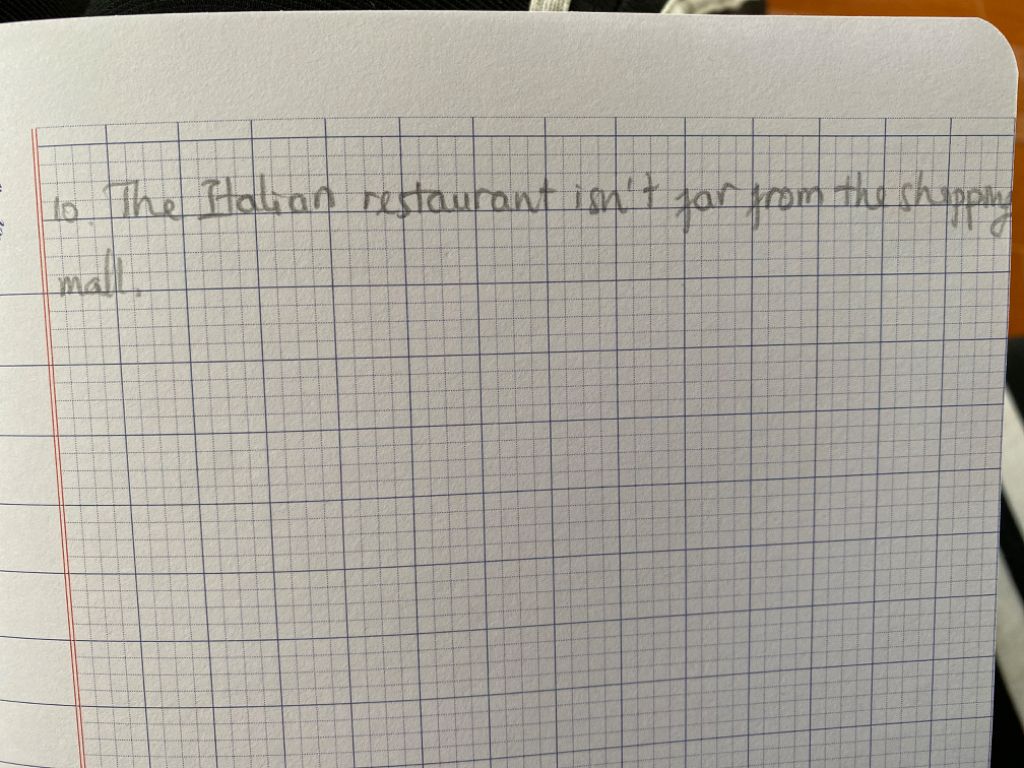 10. The Italian restaurant isn't far from the shopping
mall.